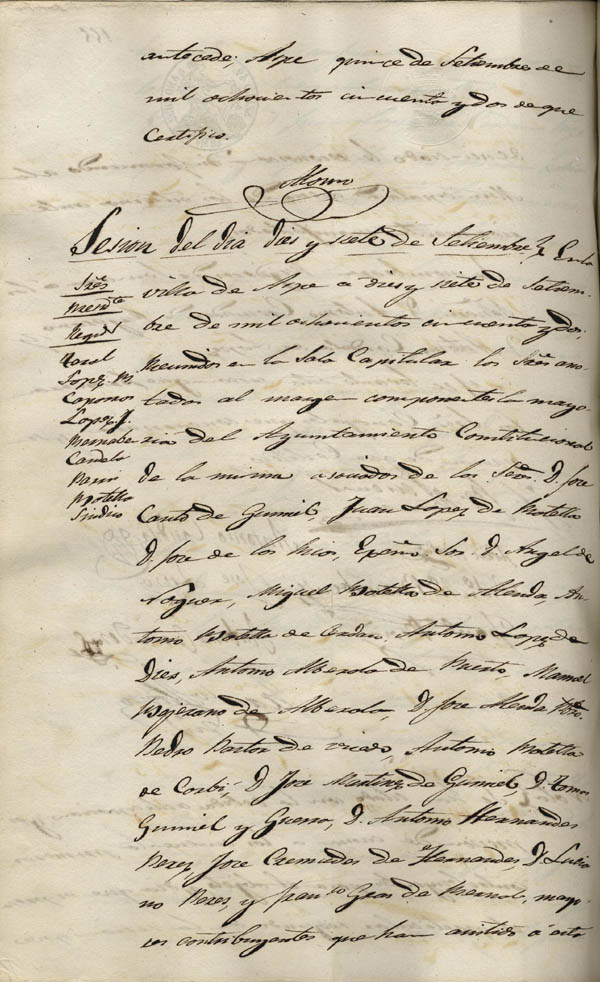 antecede; Aspe quince de Setiembre de
mil ochocientos cincuenta y dos de que
Certifico.
Sesion del dia dies y siete de Setiembre En la
villa de Aspe a dies y siete de Setiem-
bre de mil ochocientos cincuenta y dos,
Reunidos en la Sala Capitular los Sres ano-
tados al margen componentes la mayo-
ria del Ayuntamiento Constitucional
de la misma asociados de los Sres. D. Jose
Canto de Gumiel, Juan Lopez de Botella
D. Jose de los Rios, Exsmo. Sor. D. Angel de
Noguer, Miguel Botella de Almda, An-
tonio Botella de Cerdan, Antonio Lopez de
Dies, Antonio Alberola de Puerto, Manuel
Bejerano de Alberola, D. Jose Almda
Pedro Pastor de Antonio Botella
de Corbi, D. Jose Martinez de Gumiel, D. Tomas
Gumiel y Guerra, D. Antonio Hernandes
Peres, Jose Cremades de Hernandes, D. Lucia
no Peres, y Franco Gras de Bernal, mayo-
res contribuyentes que han asistido á este
Sres
Presdte
Regs
Lopez
Caparros
Lopez J.
Bernabe
Candela
Botella
Sindico